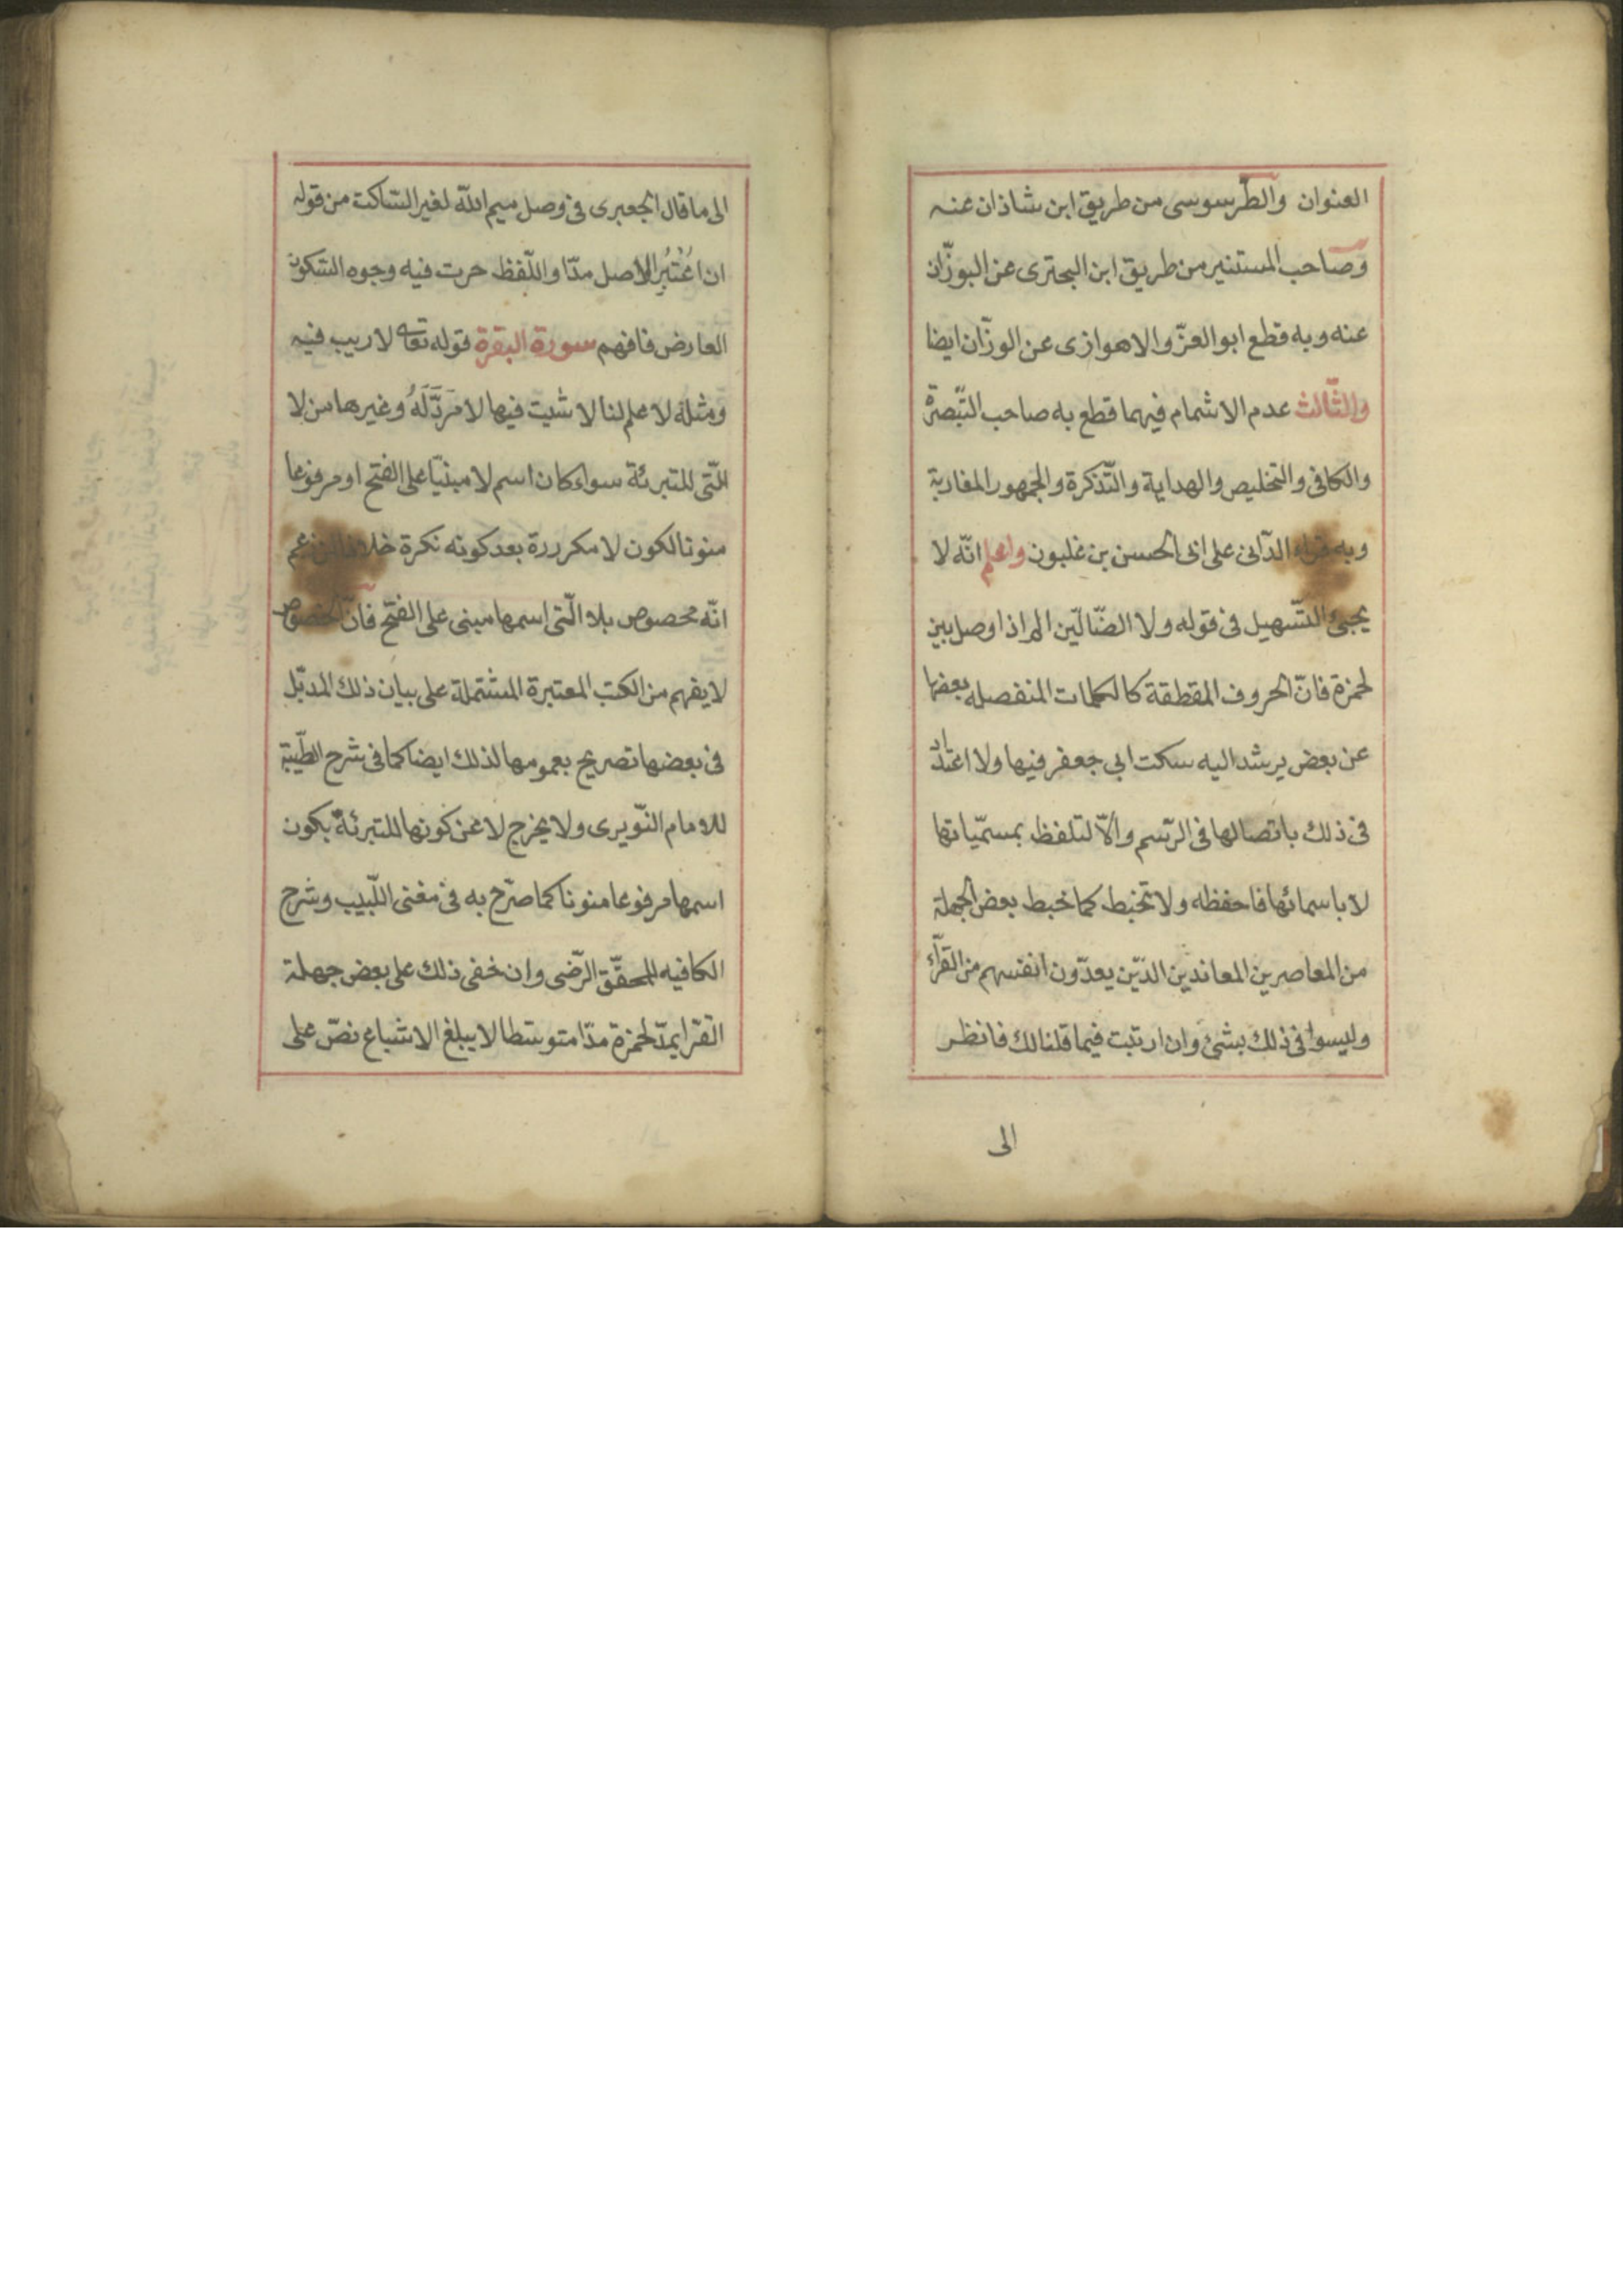 العنوان والطّرسوسى من طريق ابن شاذان عنه
وصاحب المستنير من طريق ابن البحترى عن البوزّان
عنه وبه قطع ابو العزّ والاهوازى عن الوزّان ايضا
والثّالث عدم الاشمام فيهما قطع به صاحب التّبصرة
والكافى والتخليص والهداية والتّذكرة والجمهور المغاربة
وبه قراء الدّانى على ابى الحسن بن غلبون واعلم انّه لا
يجئ التّسهيل فى قوله ولا الضّالّين الم اذا وصل بين
لحمزة فانّ الحروف المقطقة كالكلمات المنفصله بعضها
عن بعض يرشد اليه سكت ابي جعفر فيها ولا اعتداد
فى ذلك باتصالها فى الرّسم والّا لتلفظ بمسمّياتها
لا باسمائها فاحفظه ولا تخبط كما خبط بعض الجهلة
من المعاصرين المعاندين الذّين يعدّون انفسهم من القرّاء
وليسوا فى ذلك بشئ وان ارتبت فيما قلنا لك فانظر
الى
الى ما قال الجعبرى فى وصل ميم اللّه لغير السّاكت من قوله
ان اعْتُبِر الاصل مدّا واللّفظ جرت فيه وجوه السّكون
العارض فافهم سورة البقرة قوله تعا لا ريب فيه
ومثله لا علم لنا لا شيت فيها لا مَرَدَّ لَهُ وغيرها من لا
الّتى للتبرئة سواء كان اسم لا مبنيّا على الفتح او مرفوعا
منونا لكون لا مكررة بعد كونه نكرة خلافا لمن زعم
انّه مخصوص بلا الّتى اسمها مبنى على الفتح فانّ الخصوص
لا يفهم من الكتب المعتبرة المشتملة على بيان ذلك المد بل
فى بعضها تصريح بعمومها لذلك ايضا كما فى شرح الطّيّبة
للامام النّويرى ولا يخرج لا عن كونها للتبرئة بكون
اسمها مرفوعا منونا كما صرّح به فى مغنى اللّبيب وشرح
الكافيه للمحقّق الرّضى وان خفى ذلك على بعض جهلة
القرّا يمدّ لحمزة مدّا متوسّطا لا يبلغ الاشباع نصّ على